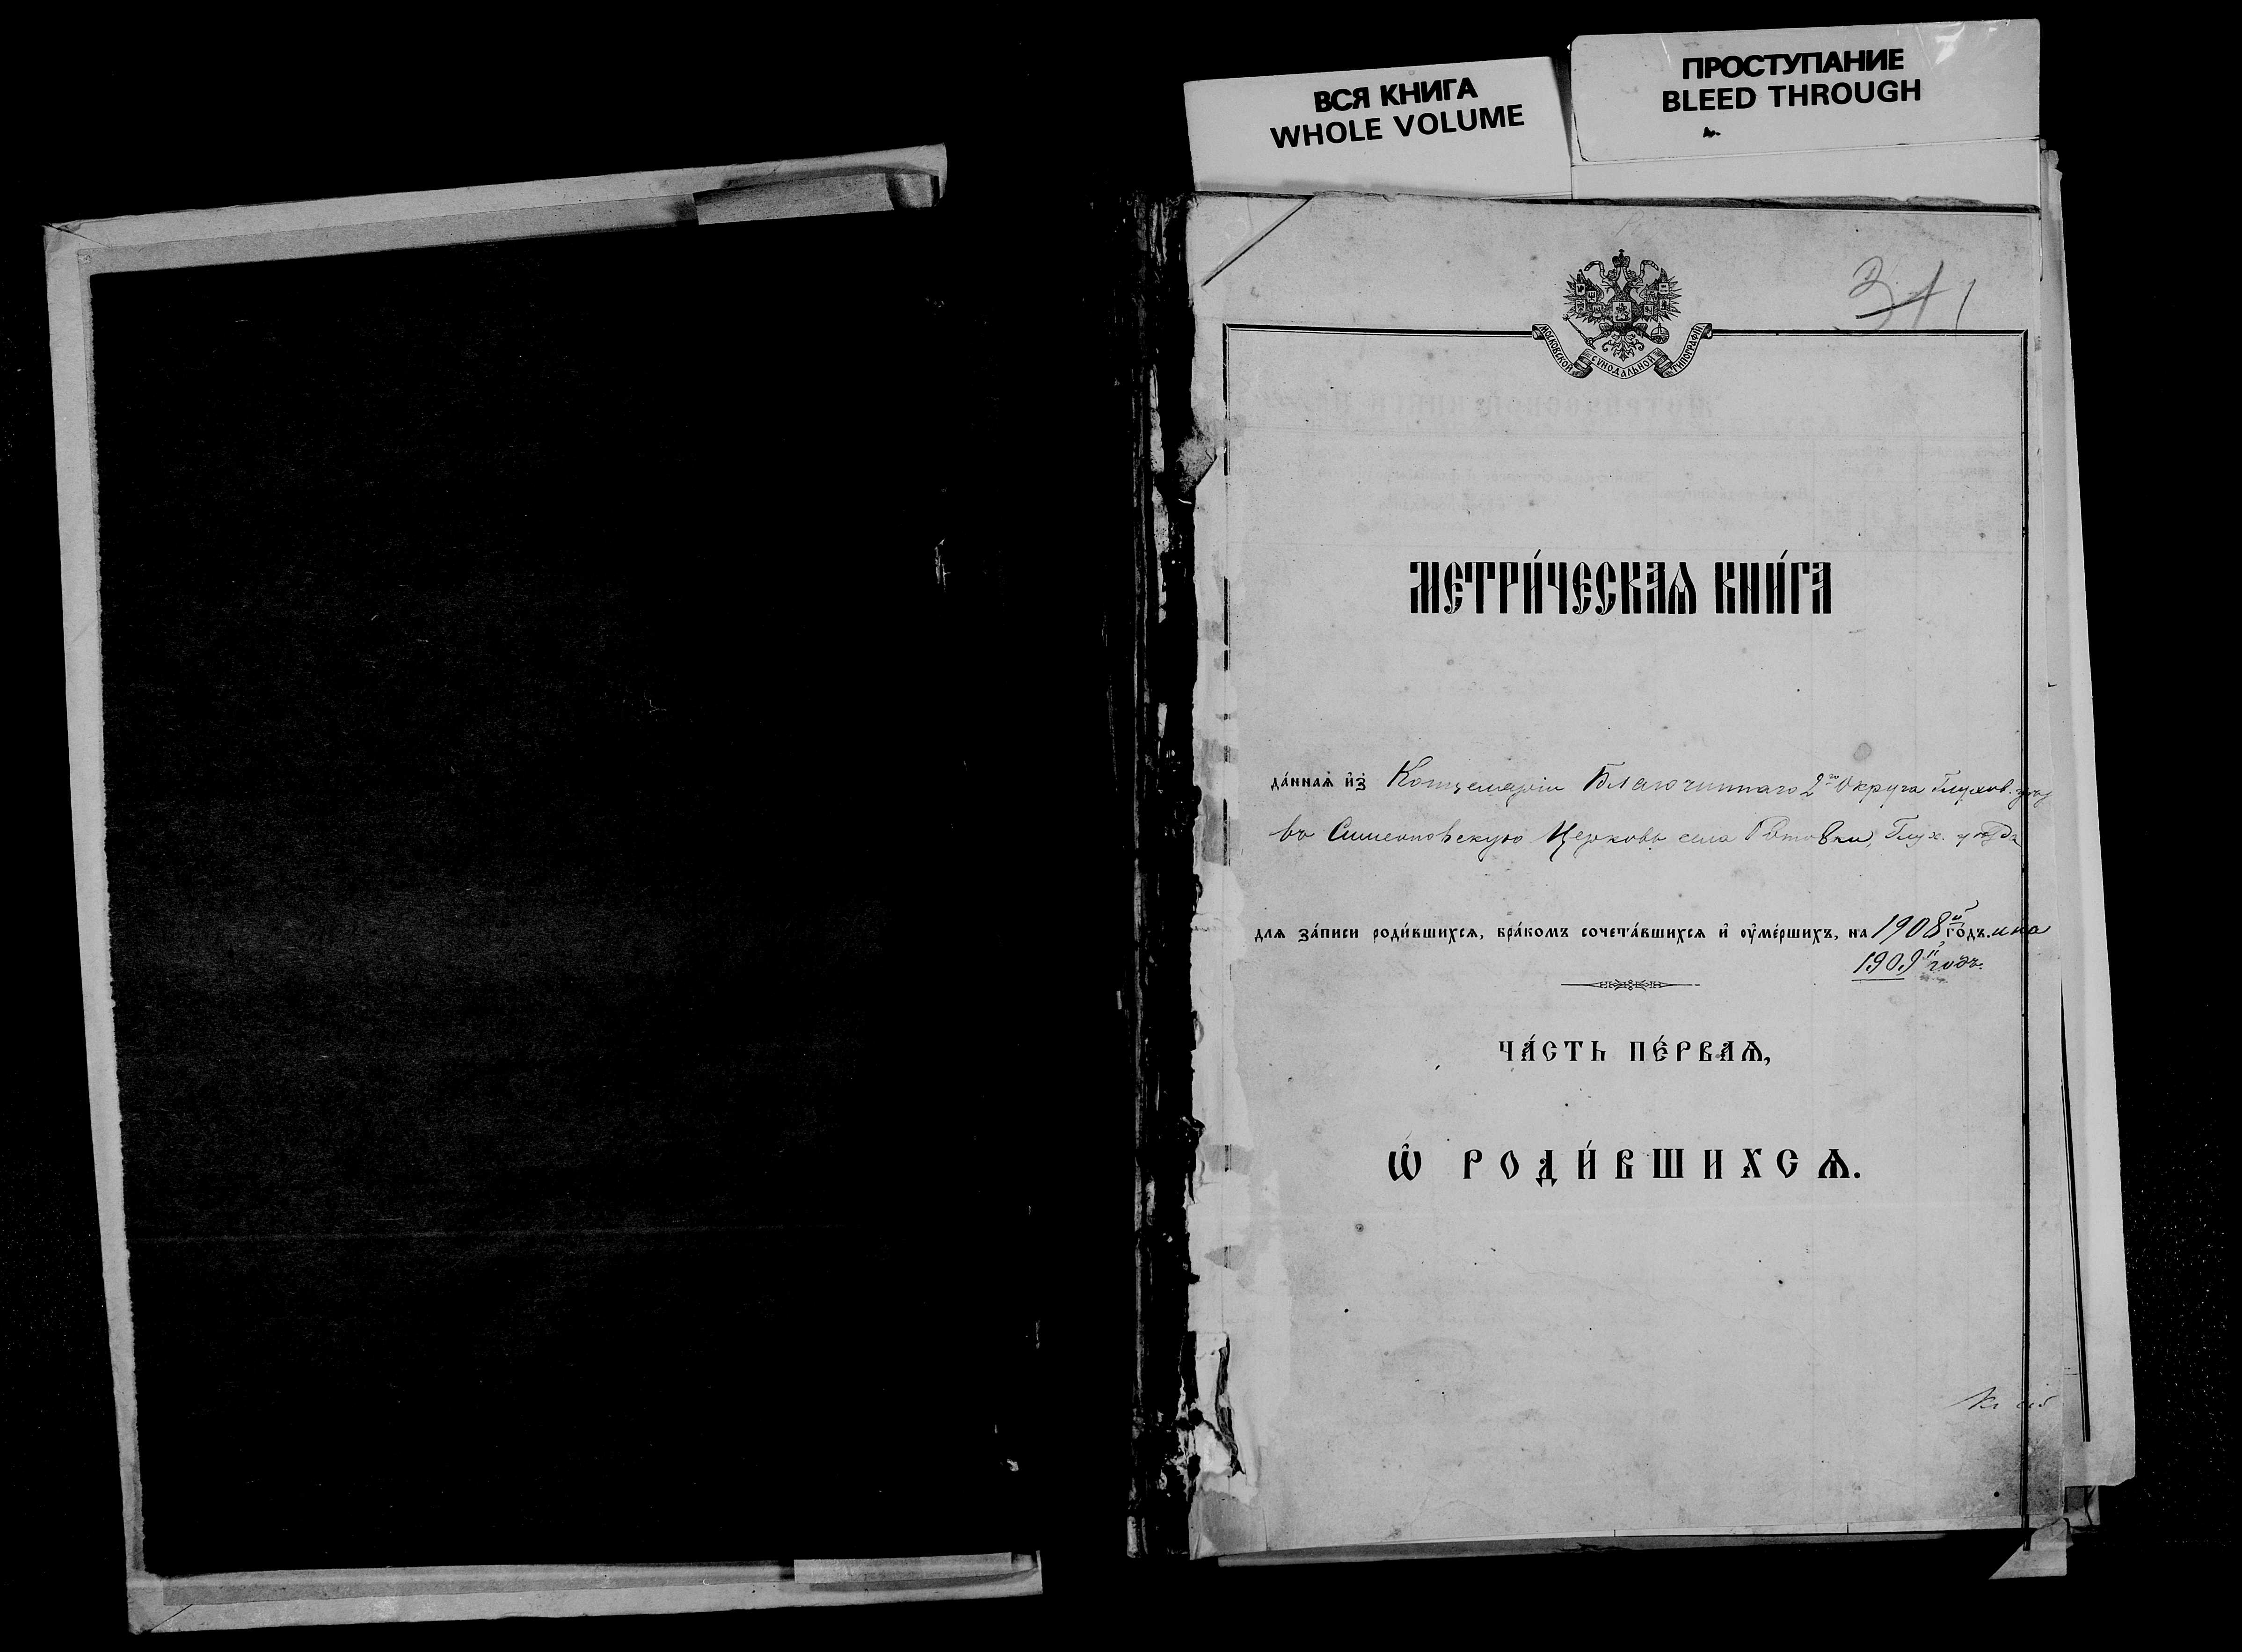 ВСЯ КНИГА
WHOLE VOLUME
ПРОСТУПАНИЕ
BLEED THROUGH
МОСКОВСКОЙ СѴНОДАЛЬНОЙ ТИПОГРАФІИ
МЕТРИ́ЧЕСКАѦ КНИ́ГА
да́ннаѧ и҆з̾ Канцеляріи Благочиннаго 2го Округа Глухов.
въ Симеоновскую Церковь села Глух. уѣзда
для за́писи роди́вшихся, бра́комъ сочета́вшихся и҆ оу҆ме́ршихъ, на 1908й го́дъ. и на
1909й годъ.
ЧА́СТЬ ПЕ́РВАѦ,
Ѽ РОДИ́ВШИХСѦ.